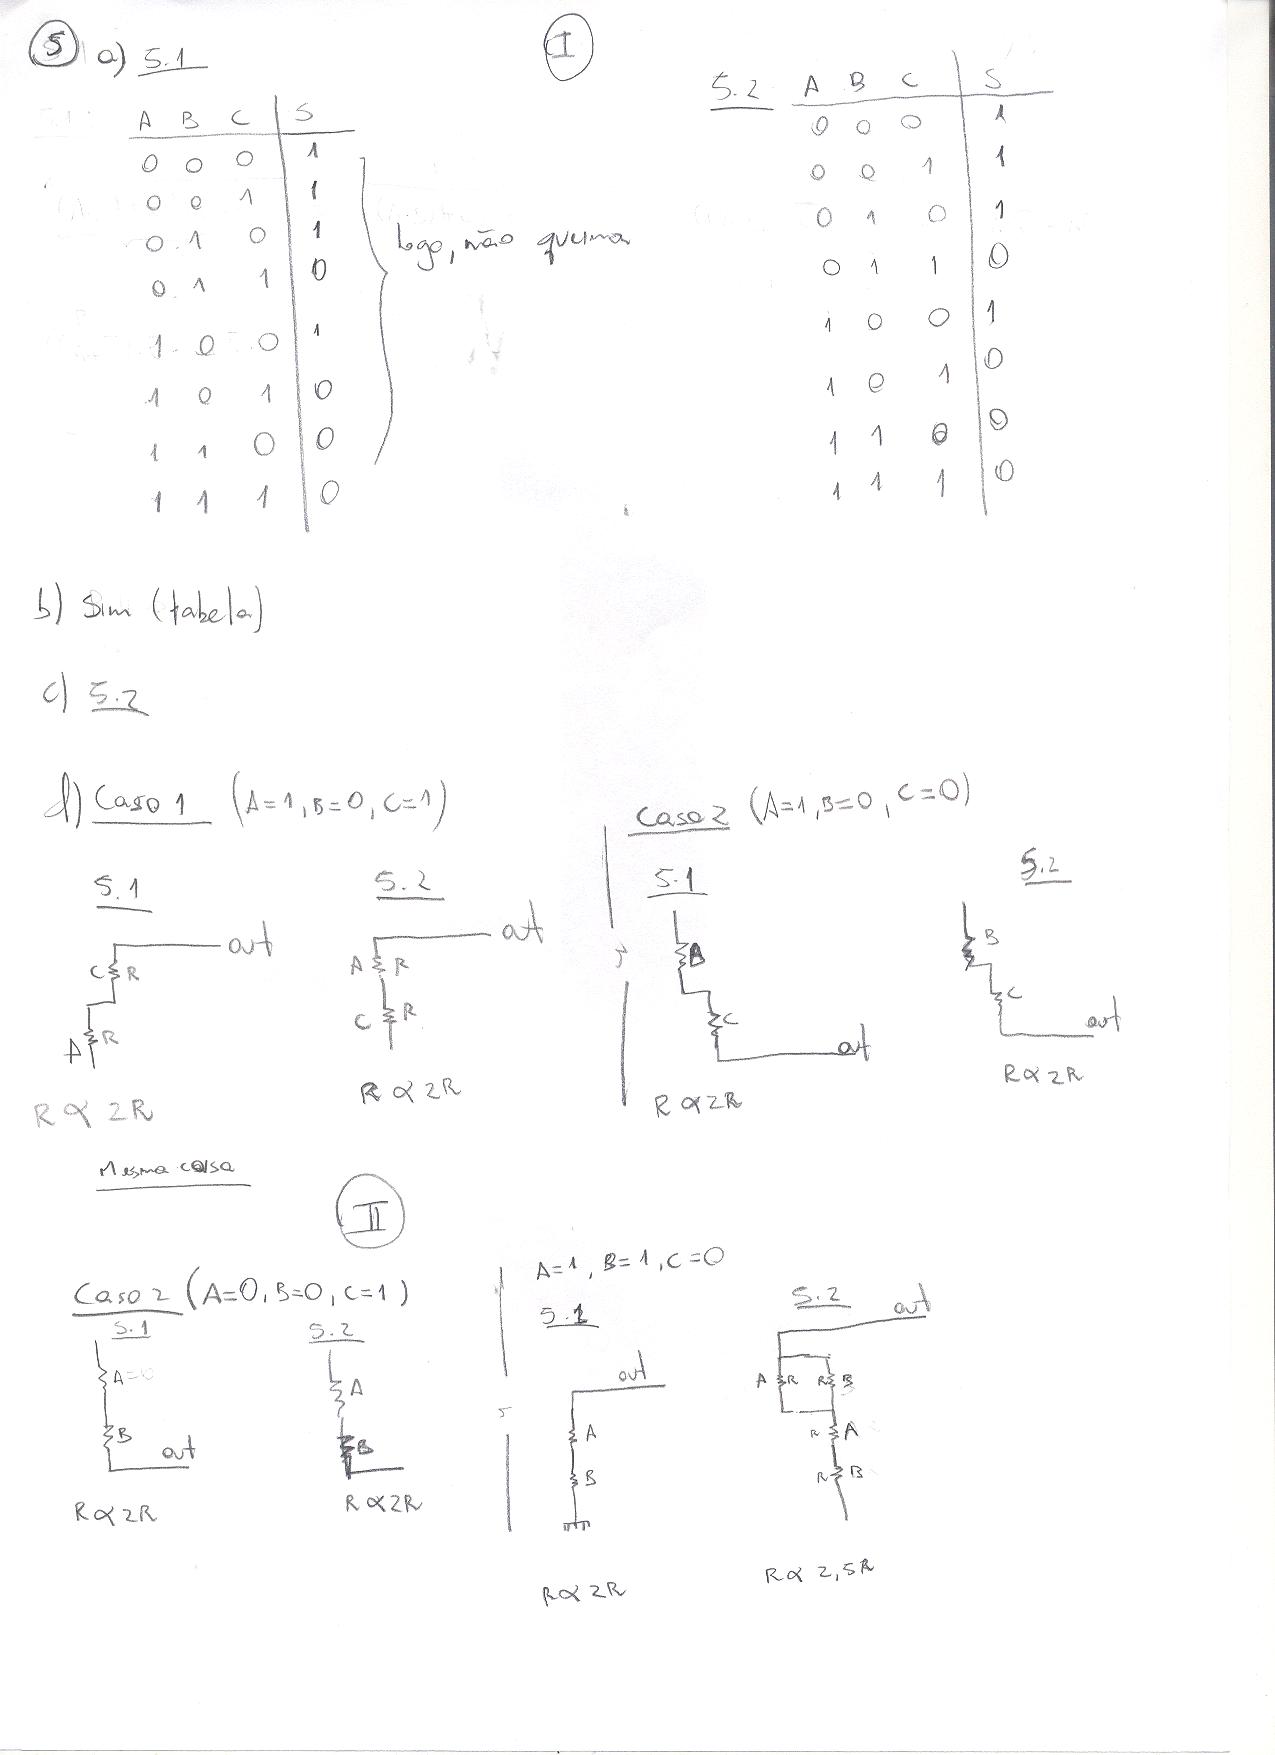 5 a) 5.1
I
A B C S
0 0 0 1
0 0 1 1
0 1 0 1
0 1 1 0
1 0 0 1
1 0 1 0
1 1 0 0
1 1 1 0
logo, não queima
5.2 A B C S
0 0 0 1
0 0 1 1
0 1 0 1
0 1 1 0
1 0 0 1
1 0 1 0
1 1 0 0
1 1 1 0
b) Sim (tabela)
c) 5.2
d) Caso 1 (A=1, B=0, C=1)
5.1
out
C R
A R
R ∝ 2R
5.2
out
A R
C R
R ∝ 2R
Mesma coisa
Caso 2 (A=1, B=0, C=0)
5.1
B
C
out
R ∝ 2R
5.2
B
C
out
R ∝ 2R
II
Caso 2 (A=0, B=0, C=1)
5.1
A=0
B
out
R ∝ 2R
5.2
A
B
R ∝ 2R
A=1, B=1, C=0
5.1
out
A
B
R ∝ 2R
5.2
out
A R R B
R A
R B
R ∝ 2,5R